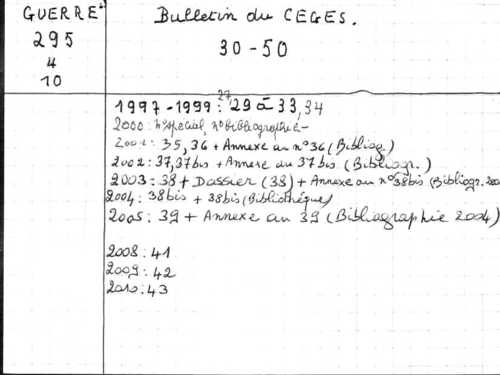 GUERRE
295
4
10
Bulletin du CEGES.
30-50
27,
1997-1999: 29 à 33, 34
2000: n° spécial, n° bibliographie
2001: 35, 36 + Annexe au n° 36 (Bibliog.)
2002: 37, 37 bis + Annexe au 37 bis (Bibliogr.)
2003: 38 + Dossier (38) + Annexe au n° 38 bis (Bibliogr.
2004: 38 bis + 38 bis (Bibliothèque)
2005: 39 + Annexe au 39 (Bibliographie 2004)
2008: 41
2009: 42
2010: 43